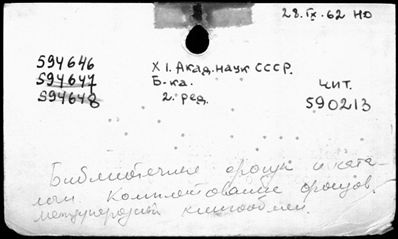 28.IX.62 НО
594646 XI. Акад. наук СССР.
594647 Б-ка.
594648 2. ред.
чит.
590213
Библиотечные фонды и ката-
логи. Комплектование фондов,
международный книгообмен.